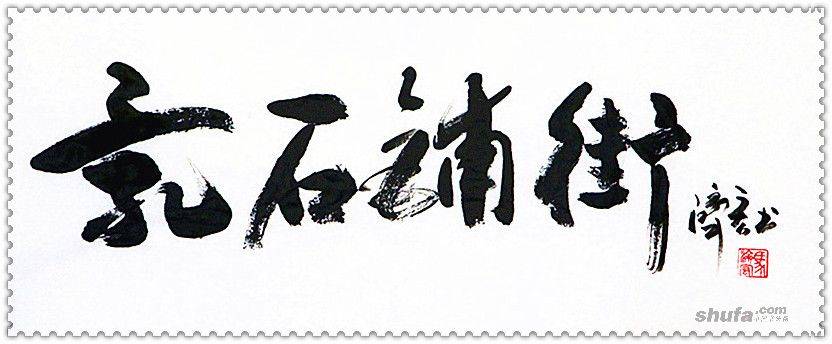 乱石铺街
shufa.com